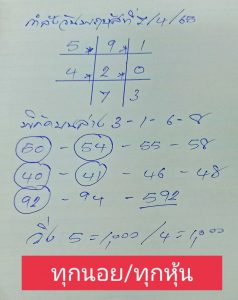 กำลังวันพฤหัสที่ 7/4/65
5 * 9 * 1
4 * 2 * 0
7 3
3-1-6-8
50 - 54 - 55 - 58
40 - 41 - 46 - 48
92 - 94 - 592
วิ่ง 5 = 1,000 / 4 = 1,000
ทุกนอย/ทุกหุ้น